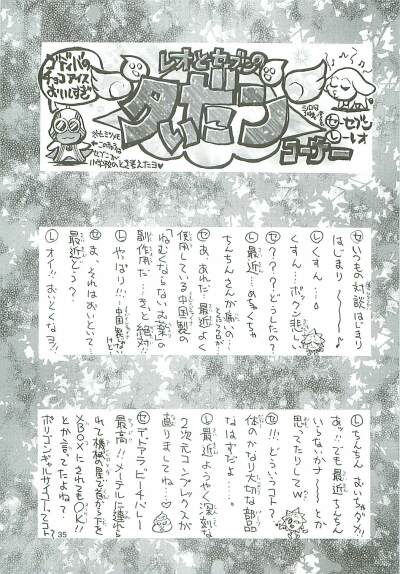 ゴディバの
チョコアイス
おいしすぎ
レオとセブンの
だいだーン
コーナー
セ…セブン
レ…レオ
小学校のとき考えたヨ
セ いつもの対談はじまり
はじまり〜〜〜
レ くすん…。
くすん…ボクン悲しい
セ ???どうしたの?
レ 最近…めちゃくちゃ
ちんちんさんが痛いの…
セ あ、あれだ 最近よく
使用している中国製の
「ねむくならないお薬」の
副作用だ…きっと絶対!!
レ やっぱり!!…中国製
セ ま、それはおいといて…
最近どう?
レ オイ!!おいとくなヨ!!
レ ちんちん おいちゃダメ!!
あッ!!でも最近ちんちん
いらないかナ〜〜〜とか
思ってたりしてw
セ !!、どういうコト?
体のかなり大切な部品
なはずだよ…。
レ 最近ようやく深刻な
2次元コンプレックスが
直りましてね…
セ デドアラ・ビーチバレー
最高!!メーテルに連れら
れて機械の星で首から下を
XBOXにされてもOK!!
とか言ってたよね?
ポリゴンギャルサイコーってコト?
35